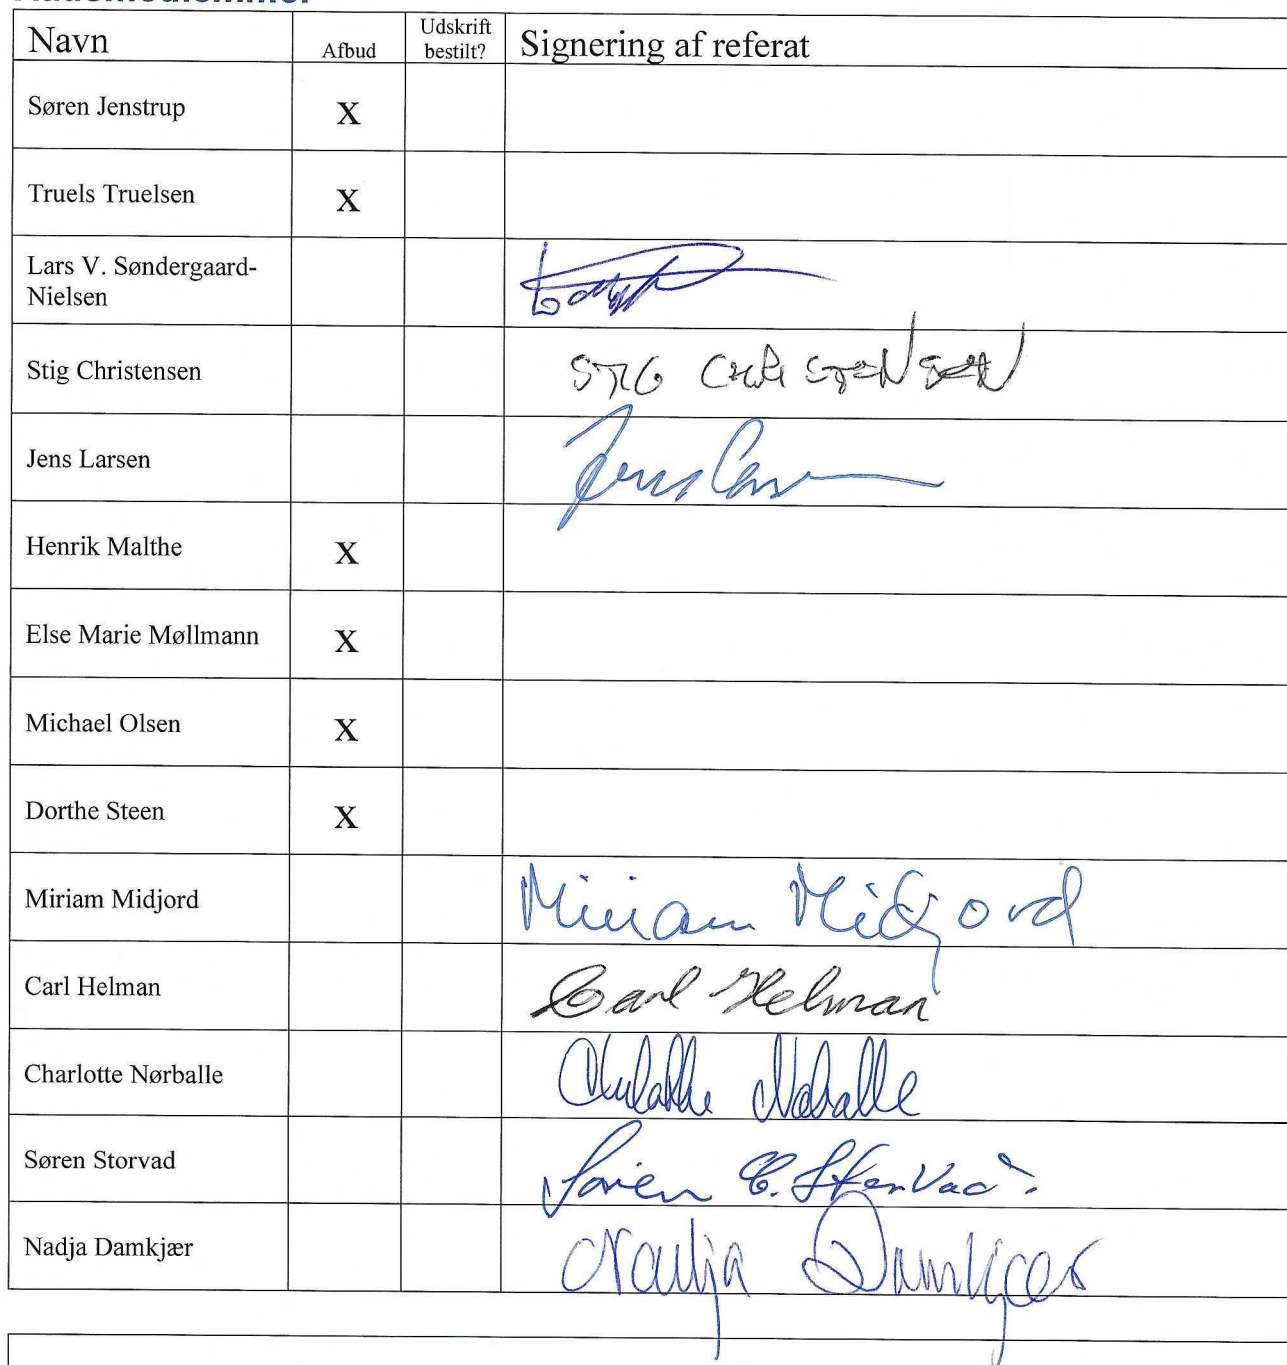 Navn Afbud Udskrift bestilt? Signering af referat
Søren Jenstrup X
Truels Truelsen X
Lars V. Søndergaard-
Nielsen
Stig Christensen STIG CHRISTENSEN
Jens Larsen Jens Larsen
Henrik Malthe X
Else Marie Møllmann X
Michael Olsen X
Dorthe Steen X
Miriam Midjord Miriam Midjord
Carl Helman Carl Helman
Charlotte Nørballe Charlotte Nørballe
Søren Storvad
Nadja Damkjær Nadja Damkjær